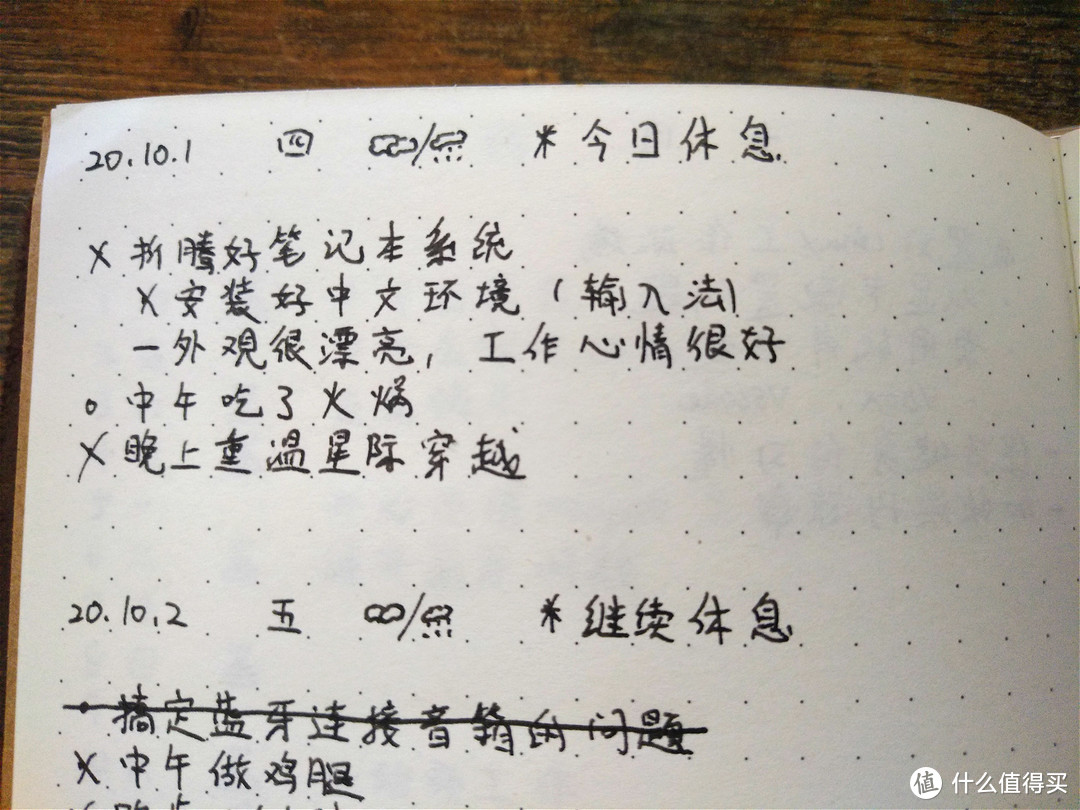 20.10.1 四 / *今日休息
× 折腾好笔记本系统
× 安装好中文环境（输入法）
— 外观很漂亮，工作心情很好
○ 中午吃了火焗
× 晚上重温星际穿越
20.10.2 五 / *继续休息
· 搞定蓝牙连接音箱的问题
× 中午做鸡腿
×
值 什么值得买